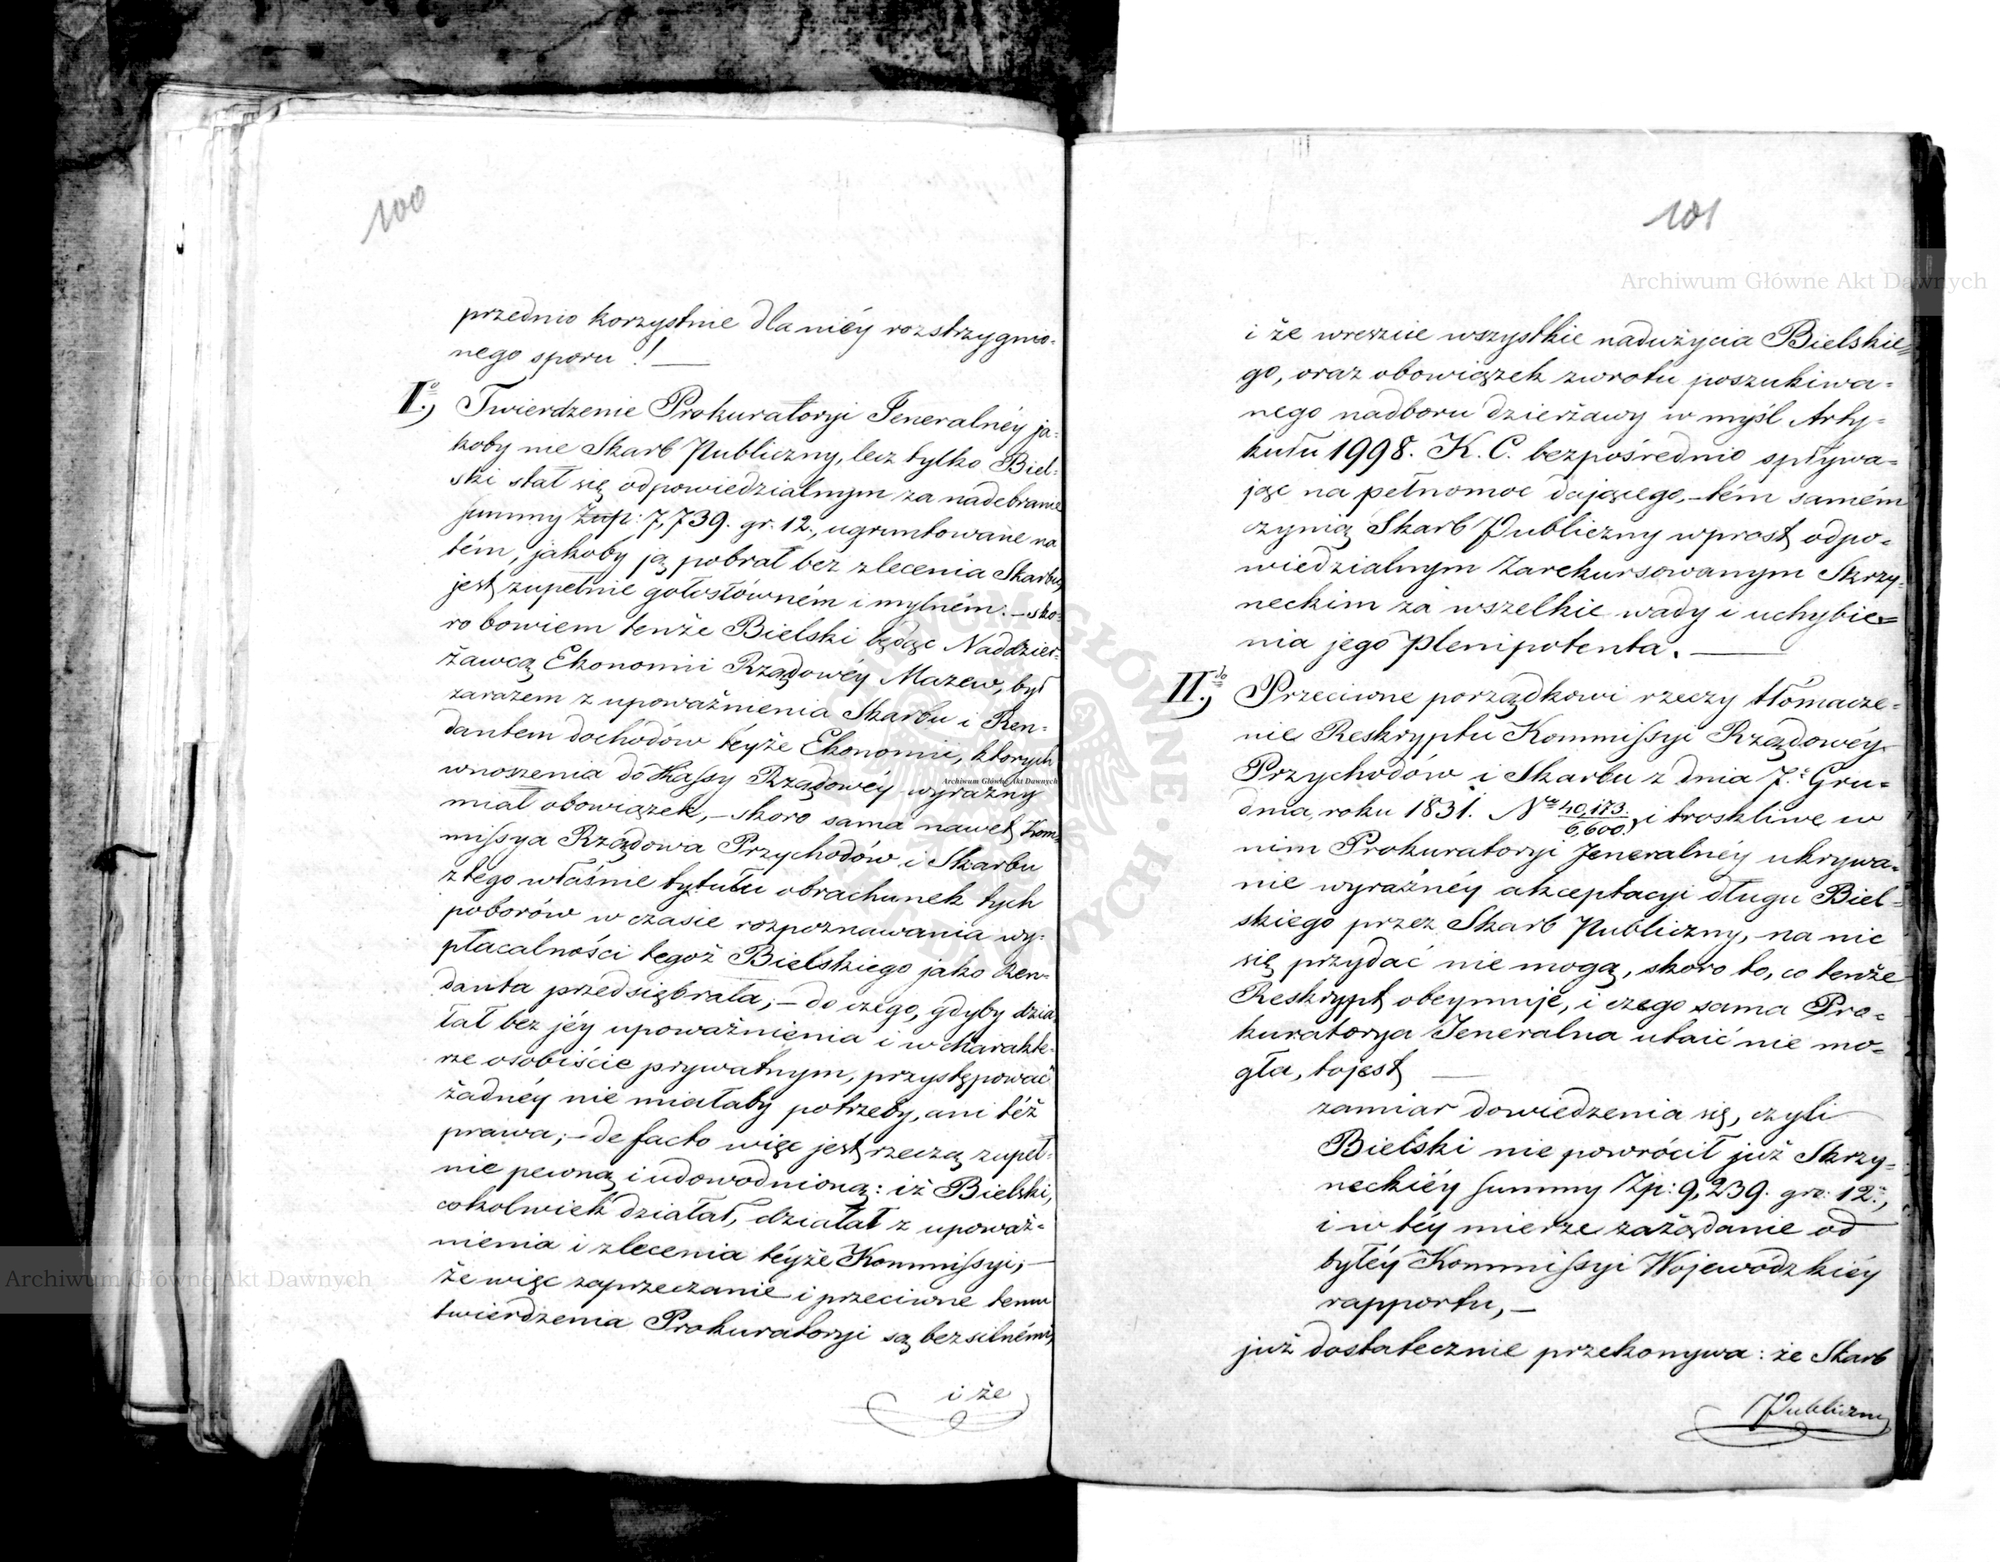 100
przednio korzystnie dla niéy rozstrzygnio-
nego sporu! —
I.o) Twierdzenie Prokuratoryi Jeneralnéy ja-
koby nie Skarb Publiczny, lecz tylko Biel-
ski stał się odpowiedzialnym za nadebranie
summy Złp: 7,739. gr. 12., ugruntowane na
tém, jakoby ją pobrał bez zlecenia Skarbu,
jest zupełnie gołosłówném i mylném. – sko-
ro bowiem tenże Bielski będąc Naddzier-
żawcą Ekonomii Rządowéy Mazew, był
zarazem z upoważnienia Skarbu i Ren-
dantem dochodów téyże Ekonomii, których
wnoszenia do Kassy Rządowéy wyraźny
miał obowiązek, – skoro sama nawet Kom-
missya Rządowa Przychodów i Skarbu
z tego właśnie tytułu obrachunek tych
poborów w czasie rozpoznawania wy-
płacalności tegoż Bielskiego jako Ren-
danta przedsiębrała; – do czego, gdyby dzia-
łał bez jéy upoważnienia i w charakte-
rze osobiście prywatnym, przystępować
żadnéy nie miałaby potrzeby, ani téż
prawa; – de facto więc jest rzeczą zupeł-
nie pewną i udowodnioną: iż Bielski,
cokolwiek działał, działał z upoważ-
nienia i zlecenia téyże Kommissyi; —
że więc zaprzeczanie i przeciwne temu
twierdzenia Prokuratoryi są bezsilnémi,
i że
101
i że wreszcie wszystkie nadużycia Bielskie-
go, oraz obowiązek zwrotu poszukiwa-
nego nadboru dzierżawy w myśl Arty-
kułu 1998. K. C. bezpośrednio spływa-
jąc na pełnomoc dającego, – tém samém
czynią Skarb Publiczny wprost odpo-
wiedzialnym Zarekursowanym Skrzy-
neckim za wszelkie wady i uchybie-
nia jego Plenipotenta. —
II.do) Przeciwne porządkowi rzeczy tłómacze-
nie Reskryptu Kommissyi Rządowéy
Przychodów i Skarbu z dnia 7. Gru-
dnia roku 1831. No 40,173/6,600, i troskliwe w
nim Prokuratoryi Jeneralnéy ukrywa-
nie wyraźnéy akceptacyi długu Biel-
skiego przez Skarb Publiczny, na nic
się przydać nie mogą, skoro to, co tenże
Reskrypt obeymuje, i czego sama Pro-
kuratorya Jeneralna utaić nie mo-
gła, to jest —
zamiar dowiedzenia się, czyli
Bielski nie powrócił już Skrzy-
neckiéy summy Zp: 9,239. gr. 12.,
i w téy mierze zażądanie od
byłéy Kommissyi Wojewódzkiéy
rapportu, –
już dostatecznie przekonywa: że Skarb
Publiczny
Archiwum Główne Akt Dawnych
Archiwum Główne Akt Dawnych
Archiwum Główne Akt Dawnych